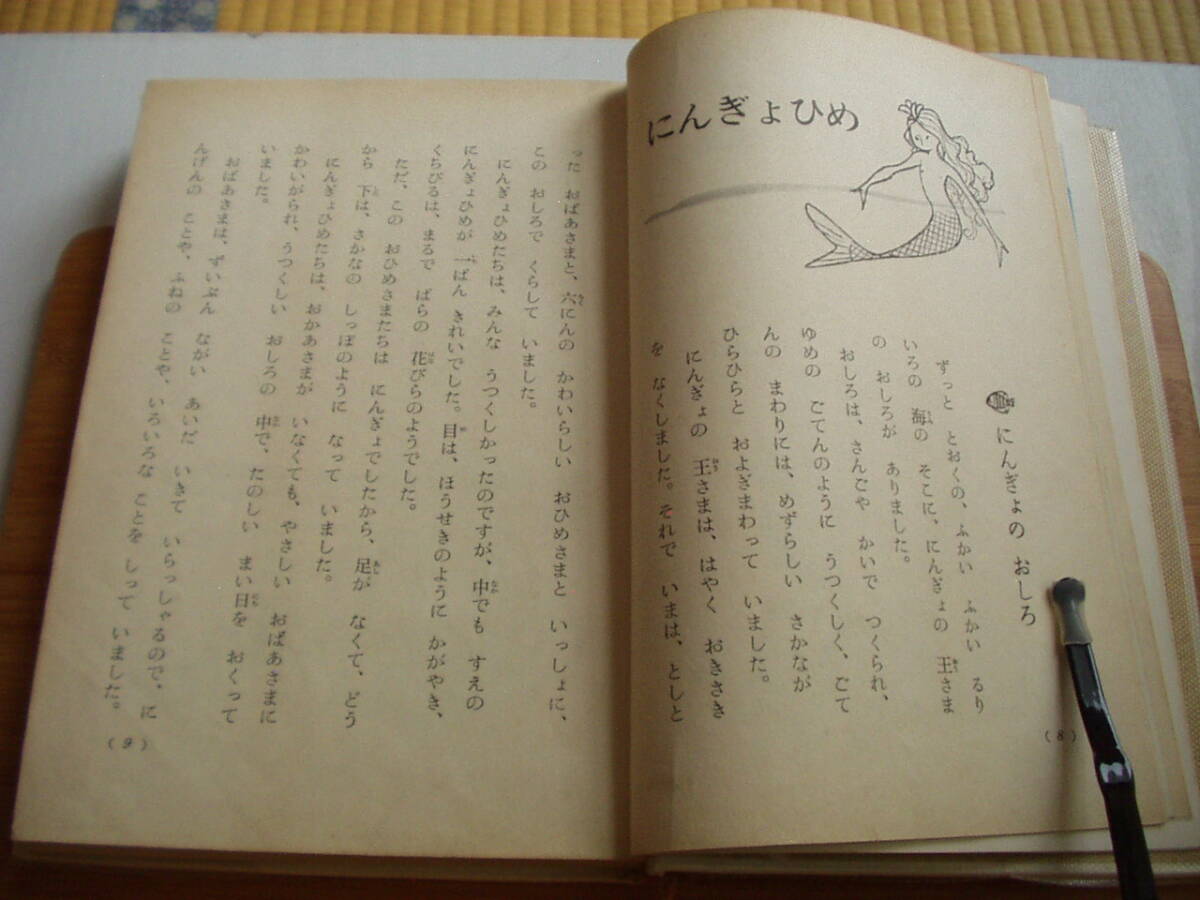 にんぎょひめ
にんぎょの おしろ
ずっと とおくの、ふかい ふかい るり
いろの 海の そこに、にんぎょの 王さま
の おしろが ありました。
おしろは、さんごや かいで つくられ、
ゆめの ごてんのように うつくしく、ごて
んの まわりには、めずらしい さかなが
ひらひらと およぎまわって いました。
にんぎょの 王さまは、はやく おきさき
を なくしました。それで いまは、としと
(8)
った おばあさまと、六にんの かわいらしい おひめさまと いっしょに、
この おしろで くらして いました。
にんぎょひめたちは、みんな うつくしかったのですが、中でも すえの
にんぎょひめが 一ばん きれいでした。目は、ほうせきのように かがやき、
くちびるは、まるで ばらの 花びらのようでした。
ただ、この おひめさまたちは にんぎょでしたから、足が なくて、どう
から 下は、さかなの しっぽのように なって いました。
にんぎょひめたちは、おかあさまが いなくても、やさしい おばあさまに
かわいがられ、うつくしい おしろの 中で、たのしい まい日を おくって
いました。
おばあさまは、ずいぶん ながい あいだ いきて いらっしゃるので、に
んげんの ことや、ふねの ことや、いろいろな ことを しって いました。
(9)